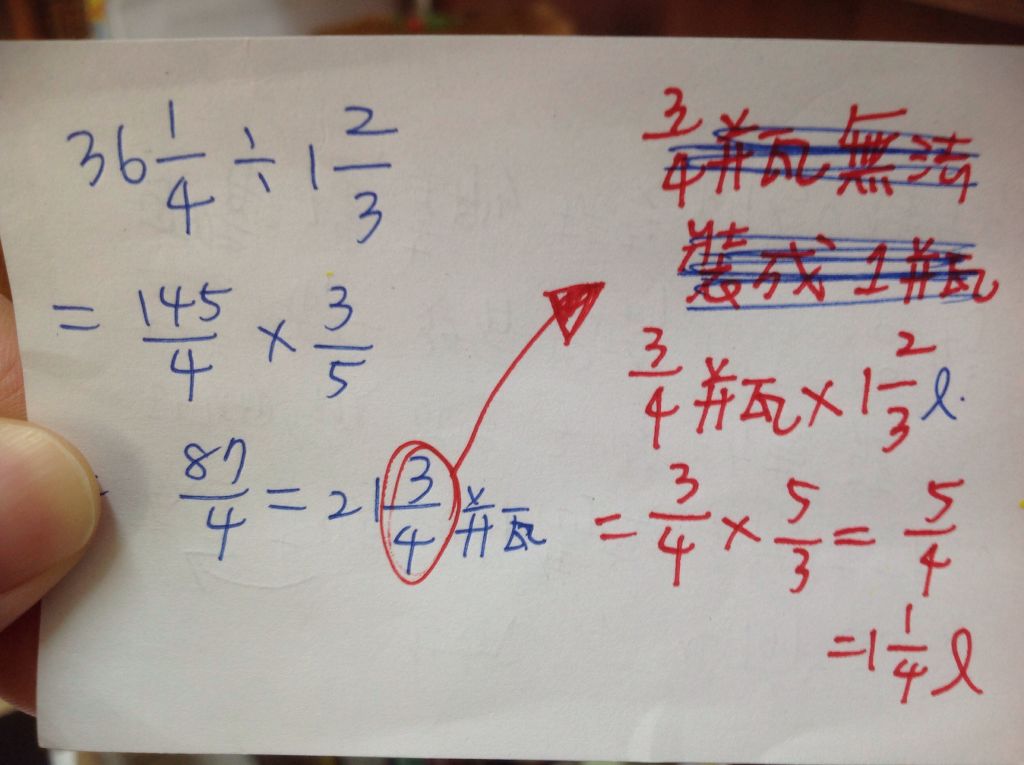 36 1/4 ÷ 1 2/3
= 145/4 × 3/5
87/4 = 21 3/4 并瓦
3/4 并瓦 無法
裝成 1 并瓦
3/4 并瓦 × 1 2/3 l.
= 3/4 × 5/3 = 5/4
= 1 1/4 l